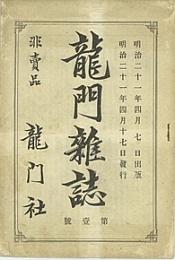 明治二十一年四月七日出版
明治二十一年四月十七日發行
龍門雜誌
第壹號
非賣品
龍門社